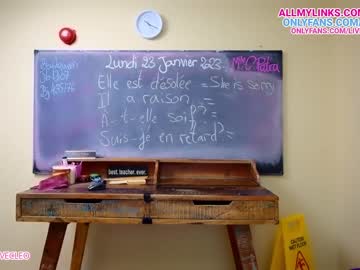 ALLMYLINKS.COM/
ONLYFANS.COM/
ONLYFANS.COM/LIV
Lundi 23 Janvier 2023
Mme C. Petra
Elle est désolée = She is sorry
Il a raison =
A-t-elle soif? =
Suis-je en retard? =
best. teacher. ever.
CAUTION
WET FLOOR
VECLEO